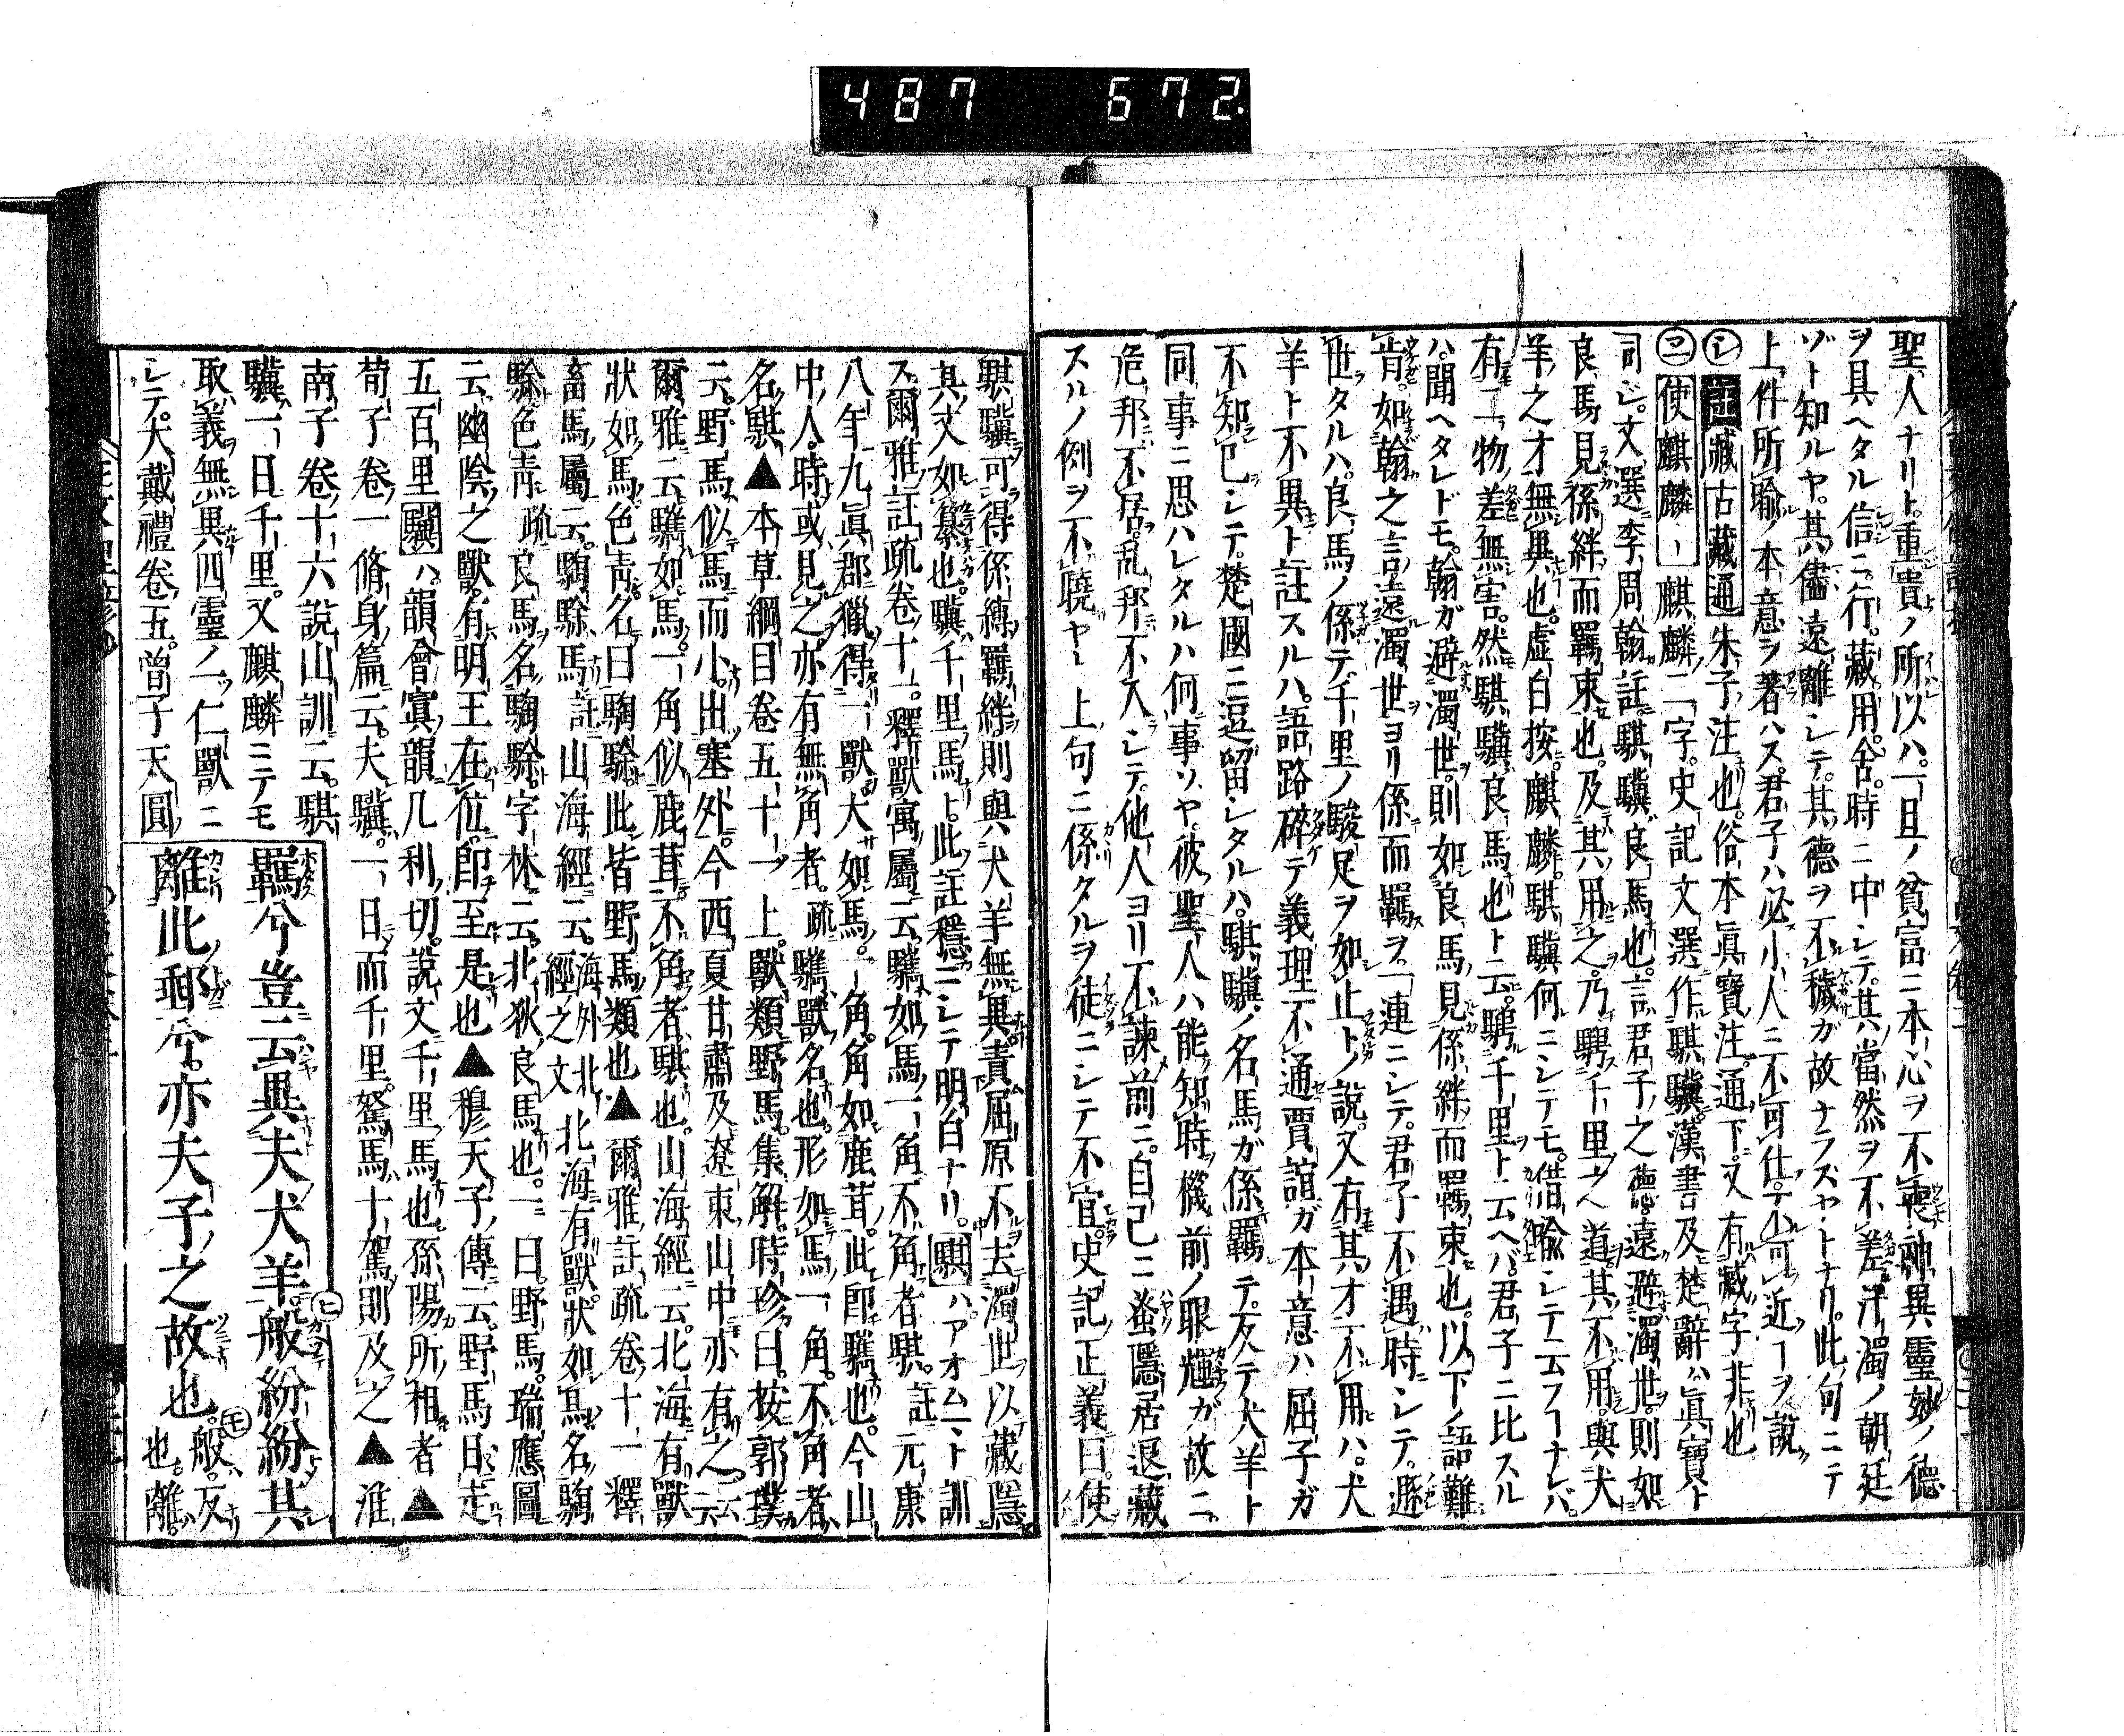 487 672.
聖人ナリト重貴ノ所以ハ一旦ノ貧富ニ本心ヲ不喪神異靈妙ノ德
ヲ具ヘタル信ニ行藏用舍時ニ中シテ其當然ヲ不差汙濁ノ朝廷
ゾト知ルヤ其儘遠離シテ其德ヲ不穢ガ故ナラズヤトナリ此句ニテ
上件所喻ノ本意ヲ著ハス君子ハ必小人ニ不可仕不可近ヿヲ說
㋛臧古藏通朱子注也俗本眞寶注通下又有藏字非也
㋥使麒麟ー麒麟二字史記文選作騏驥漢書及楚辭ハ眞寶ト
同ジ文選李周翰註騏驥良馬也言君子之德遠避濁世則如
良馬見係絆而羈束也及其用之乃騁千里之道其不用與犬
羊之才無異也虛白按麒麟騏驥何ニシテモ借喻シテ云フヿナレバ
有二物差無害然騏驥良馬也ト云騁千里ト云ヘバ君子ニ比スル
ハ聞ヘタレドモ翰ガ避濁世則如良馬見係絆而羈束也以下ノ語難
肯如翰之言遠濁世ヨリ係而羈ヲ一連ニシテ君子不遇時シテ遯
世タルハ良馬ノ係テ千里ノ駿足ヲ如止トノ說又有其才不用ハ犬
羊ト不異ト註スルハ語路碎テ義理不通賈誼ガ本意ハ屈子ガ
不知已シテ楚國ニ逗留シタルハ騏驥ノ名馬ガ係羈テ反テ犬羊ト
同事ニ思ハレタルハ何事ソヤ彼聖人ハ能知時機前ノ眼輝ガ故ニ
危邦不居乱邦不入シテ他人ヨリ不諫前ニ自己ニ蚤隱居退藏
スルノ例ヲ不曉ヤー上句ニ係タルヲ徒ニシテ不宜史記正義曰使
騏驥可得係縛羈絆則與犬羊無異責屈原不去濁世以藏隱
其文如綦也驥千里馬ト此註穩ニシテ明白ナリ騏ハアオムート訓
ス爾雅註疏卷十一釋獸寓屬云驨如馬一角不角者騏註元康
八年九眞郡獵得一獸大如馬一角角如鹿茸此卽驨也今山
中人時或見之亦有無角者疏驨獸名也形如馬一角不角者
名騏▲本草綱目卷五十一上獸類野馬集解時珍曰按郭璞
云野馬似馬而小出塞外今西夏甘肅及遼東山中亦有之云云
爾雅云驨如馬一角似鹿茸不角者騏也山海經云北海有獸
狀如馬色靑名曰騊駼此皆野馬類也▲爾雅註疏卷十一釋
畜馬屬云騊駼馬註山海經云海外北經之文北海有獸狀如馬名騊
駼色靑疏良馬名騊駼字林云北狄良馬也一曰野馬瑞應圖
云幽陰之獸有明王在位卽至是也▲穆天子傳云野馬日走
五百里驥ハ韻會寘韻几利切說文千里馬也孫陽所相者▲
荀子卷一脩身篇云夫驥一日而千里駑馬十駕則及之▲淮
南子卷十六說山訓云騏
驥一日千里又麒麟ニテモ
取義無異四靈ノ一ツ仁獸ニ
シテ大戴禮卷五曾子天圓
羈兮豈云異夫犬羊㋪般紛紛其
離此郵兮亦夫子之故也㋲般反也離